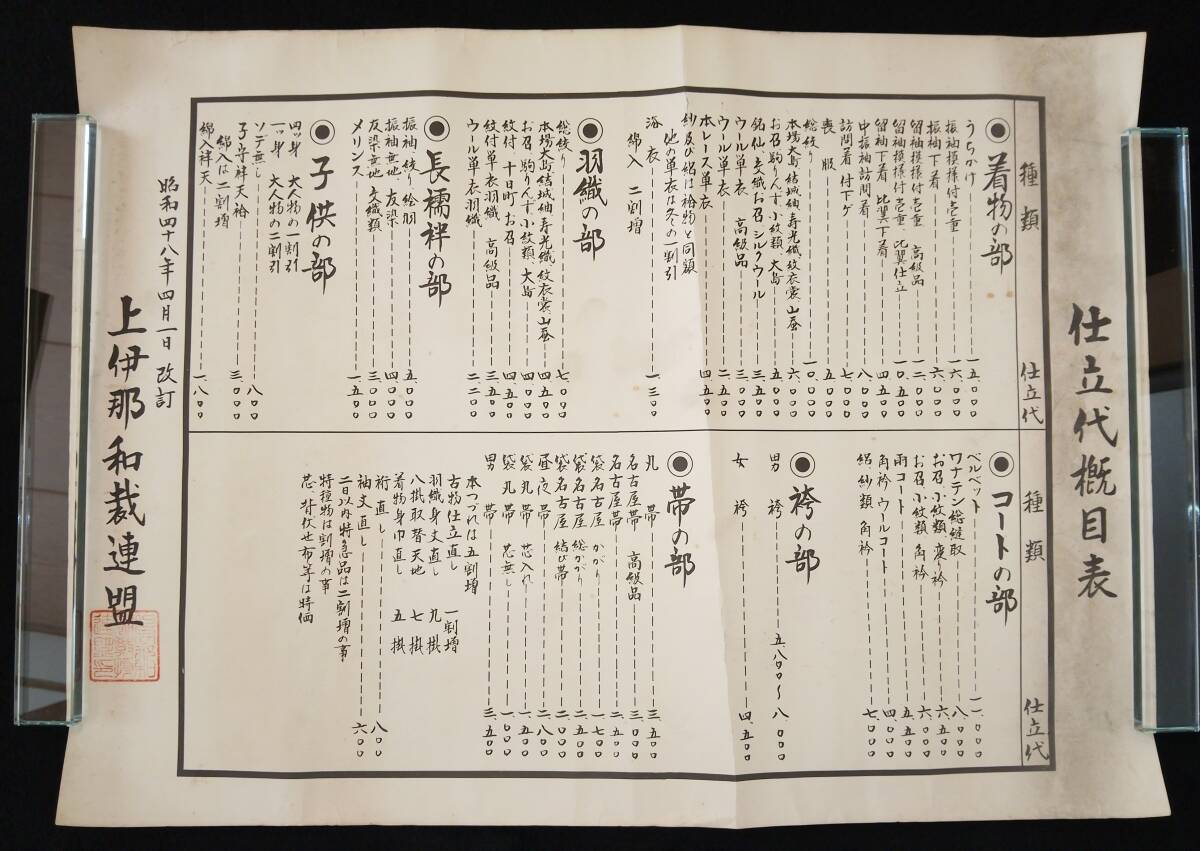 仕立代概目表
種類
仕立代
◉着物の部
うちかけ 一五、〇〇〇
振袖模様付壱重 一六、〇〇〇
振袖下着 六、〇〇〇
留袖模様付壱重 高級品 一二、〇〇〇
留袖模様付壱重 比翼仕立 一〇、五〇〇
留袖下着 比翼下着 四、五〇〇
中振袖訪問着 八、〇〇〇
訪問着 付下ゲ 七、〇〇〇
喪服 五、〇〇〇
総絞り 一〇、〇〇〇
本場大島結城紬寿光織紋衣裳、山蚕 六、〇〇〇
お召駒りんず小紋類大島 五、〇〇〇
銘仙、交織お召シルクウール 三、五〇〇
ウール単衣 高級品 三、〇〇〇
ウール単衣 二、五〇〇
本レース単衣 四、五〇〇
紗及び絽は袷物と同額
他の単衣は冬の一割引
浴衣 一、三〇〇
綿入 二割増
◉羽織の部
総絞り 七、〇〇〇
本場大島結城紬寿光織紋衣裳、山蚕 四、五〇〇
お召駒りんず小紋類大島 四、〇〇〇
紋付 十日町お召 四、五〇〇
紋付単衣羽織 高級品 三、五〇〇
ウール単衣羽織 二、二〇〇
◉長襦袢の部
振袖、絞り、絵羽 五、〇〇〇
振袖無地、友染 四、〇〇〇
友染無地、交織類 三、〇〇〇
メリンス 一、五〇〇
◉子供の部
四ッ身 大人物の一割引
一ッ身 大人物の二割引
ソデ無し 八〇〇
子守袢天袷 三、〇〇〇
綿入は二割増
綿入袢天 一、八〇〇
種類
仕立代
◉コートの部
ベルベット 一一、〇〇〇
ワナテン総縫取 八、〇〇〇
お召、小紋類 変り衿 六、五〇〇
お召、小紋類 角衿 六、〇〇〇
雨コート 五、五〇〇
角衿ウールコート 四、〇〇〇
絽紗類 角衿 七、〇〇〇
◉袴の部
男袴 五、八〇〇〜八、〇〇〇
女袴 四、五〇〇
◉帯の部
丸帯 三、五〇〇
名古屋帯 高級品 三、〇〇〇
名古屋帯 二、五〇〇
袋名古屋 かがり 一、七〇〇
袋名古屋 総かがり 二、五〇〇
袋名古屋 結び帯 二、〇〇〇
昼夜帯 二、八〇〇
袋丸帯 芯入れ 一、五〇〇
袋丸帯 芯無し 一、〇〇〇
男帯 三、五〇〇
本つづれは五割増
古物仕立直し 一割増
羽織身丈直し 九掛
八掛取替天地 七掛
着物身巾直し 五掛
裄直し 八〇〇
袖丈直し 六〇〇
二日以内特急品は二割増の事
特種物は割増の事
昭和四十八年四月一日改訂
上伊那和裁連盟